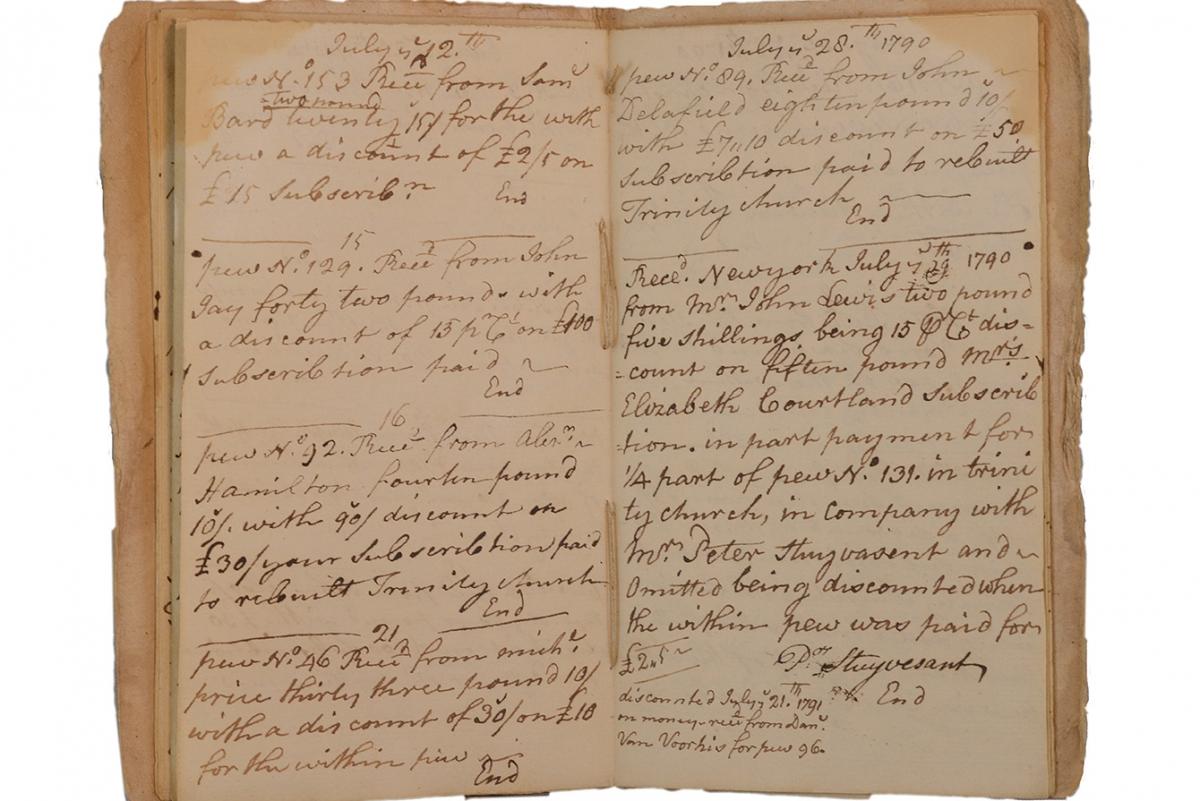 July yᵉ 12.th
pew No. 153 Recd from Saml
two pound
Bard twenty 15/ for the with
pew a discount of £2/5 on
£15 Subscribn
End
15
pew No. 129. Recd from John
Jay forty two pounds with
a discount of 15 p Ct on £100
subscribtion paid
End
16
pew No. 92. Recd from Alexr
Hamilton fourten pound
10/. with 90/ discount on
£30/ your Subscribtion paid
to rebuilt Trinity church
End
21
pew No. 46 Recd from michl
price thirty three pound 10/
with a discount of 30/ on £10
for the within pew
End
July yᵉ 28.th 1790
pew No. 89. Recd from John
Delafield eighten pound 10/
with £7,,10 discount on £50
subscribtion paid to rebuilt
Trinity church
End
Reced. Newyork July yᵉ 29th 1790
from Mr. John Lewis two pound
five shillings being 15 P Ct dis=
=count on fiften pound Mrs.
Elizabeth Courtland Subscrib
tion. in part payment for
1/4 part of pew No. 131. in trini
ty church, in Company with
Mr. Peter Stuyvasent and
Omitted being discounted when
the within pew was paid for
£2,,5
Pr. Stuyvesant
End
discounted July yᵉ 21.th 1791
on money recd from Danl.
Van Voorhis for pew 96.